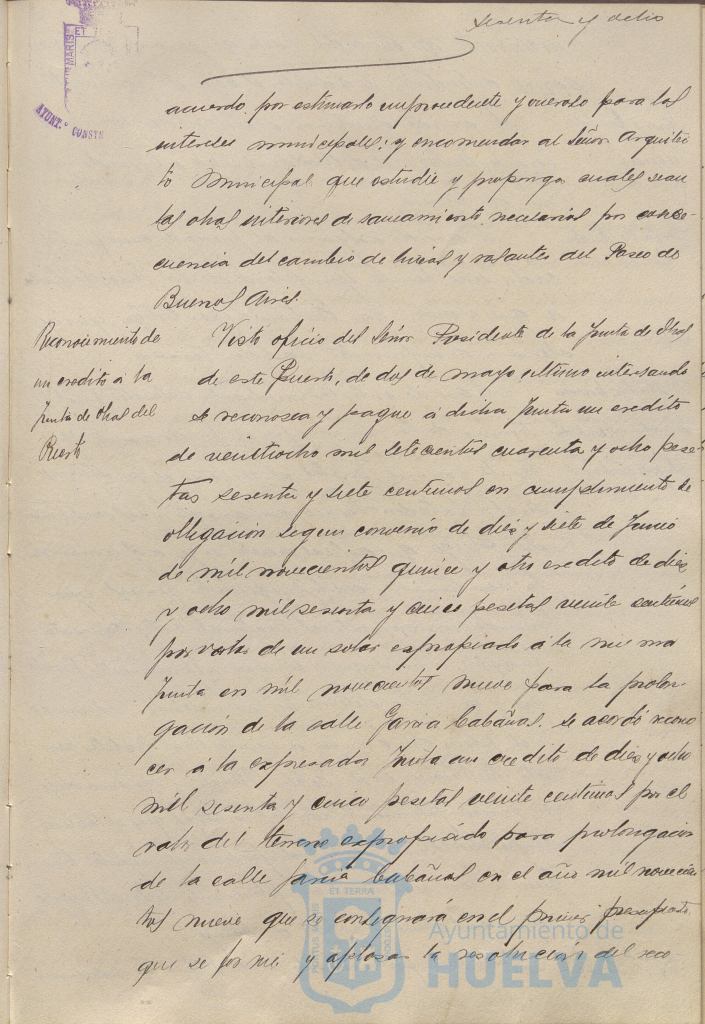 sesenta y ocho
acuerdo, por estimarlo improcedente y oneroso para los
intereses municipales; y encomendar al Señor Arquitec
to Municipal que estudie y proponga cuales sean
las obras interiores de saneamiento necesarias por conse-
cuencia del cambio de lineas y rasantes del Paseo de
Buenos Aires.
Reconocimiento de
un credito a la
Junta de Obras del
Puerto
Visto oficio del Señor Presidente de la Junta de Obras
de este Puerto, de dos de mayo ultimo interesando
se reconozca y pague á dicha Junta un credito
de veintiocho mil setecientas cuarenta y ocho pese-
tas sesenta y siete centimos en cumplimiento de
obligación segun convenio de diez y siete de Junio
de mil novecientos quince y otro credito de diez
y ocho mil sesenta y cinco pesetas veinte centimos
por valor de un solar expropiado á la misma
Junta en mil novecientos nueve para la prolon-
gación de la calle Garcia Cabañas. Se acordó recono
cer á la expresada Junta un credito de diez y ocho
mil sesenta y cinco pesetas veinte centimos por el
valor del terreno expropiado para prolongación
de la calle Garcia Cabañas en el año mil novecien
tos nueve que se consignará en el primer presupuesto
que se forme y aplazar la resolución del reco-
AYUNT.º CONSTN
ET TERRA
Ayuntamiento de
HUELVA